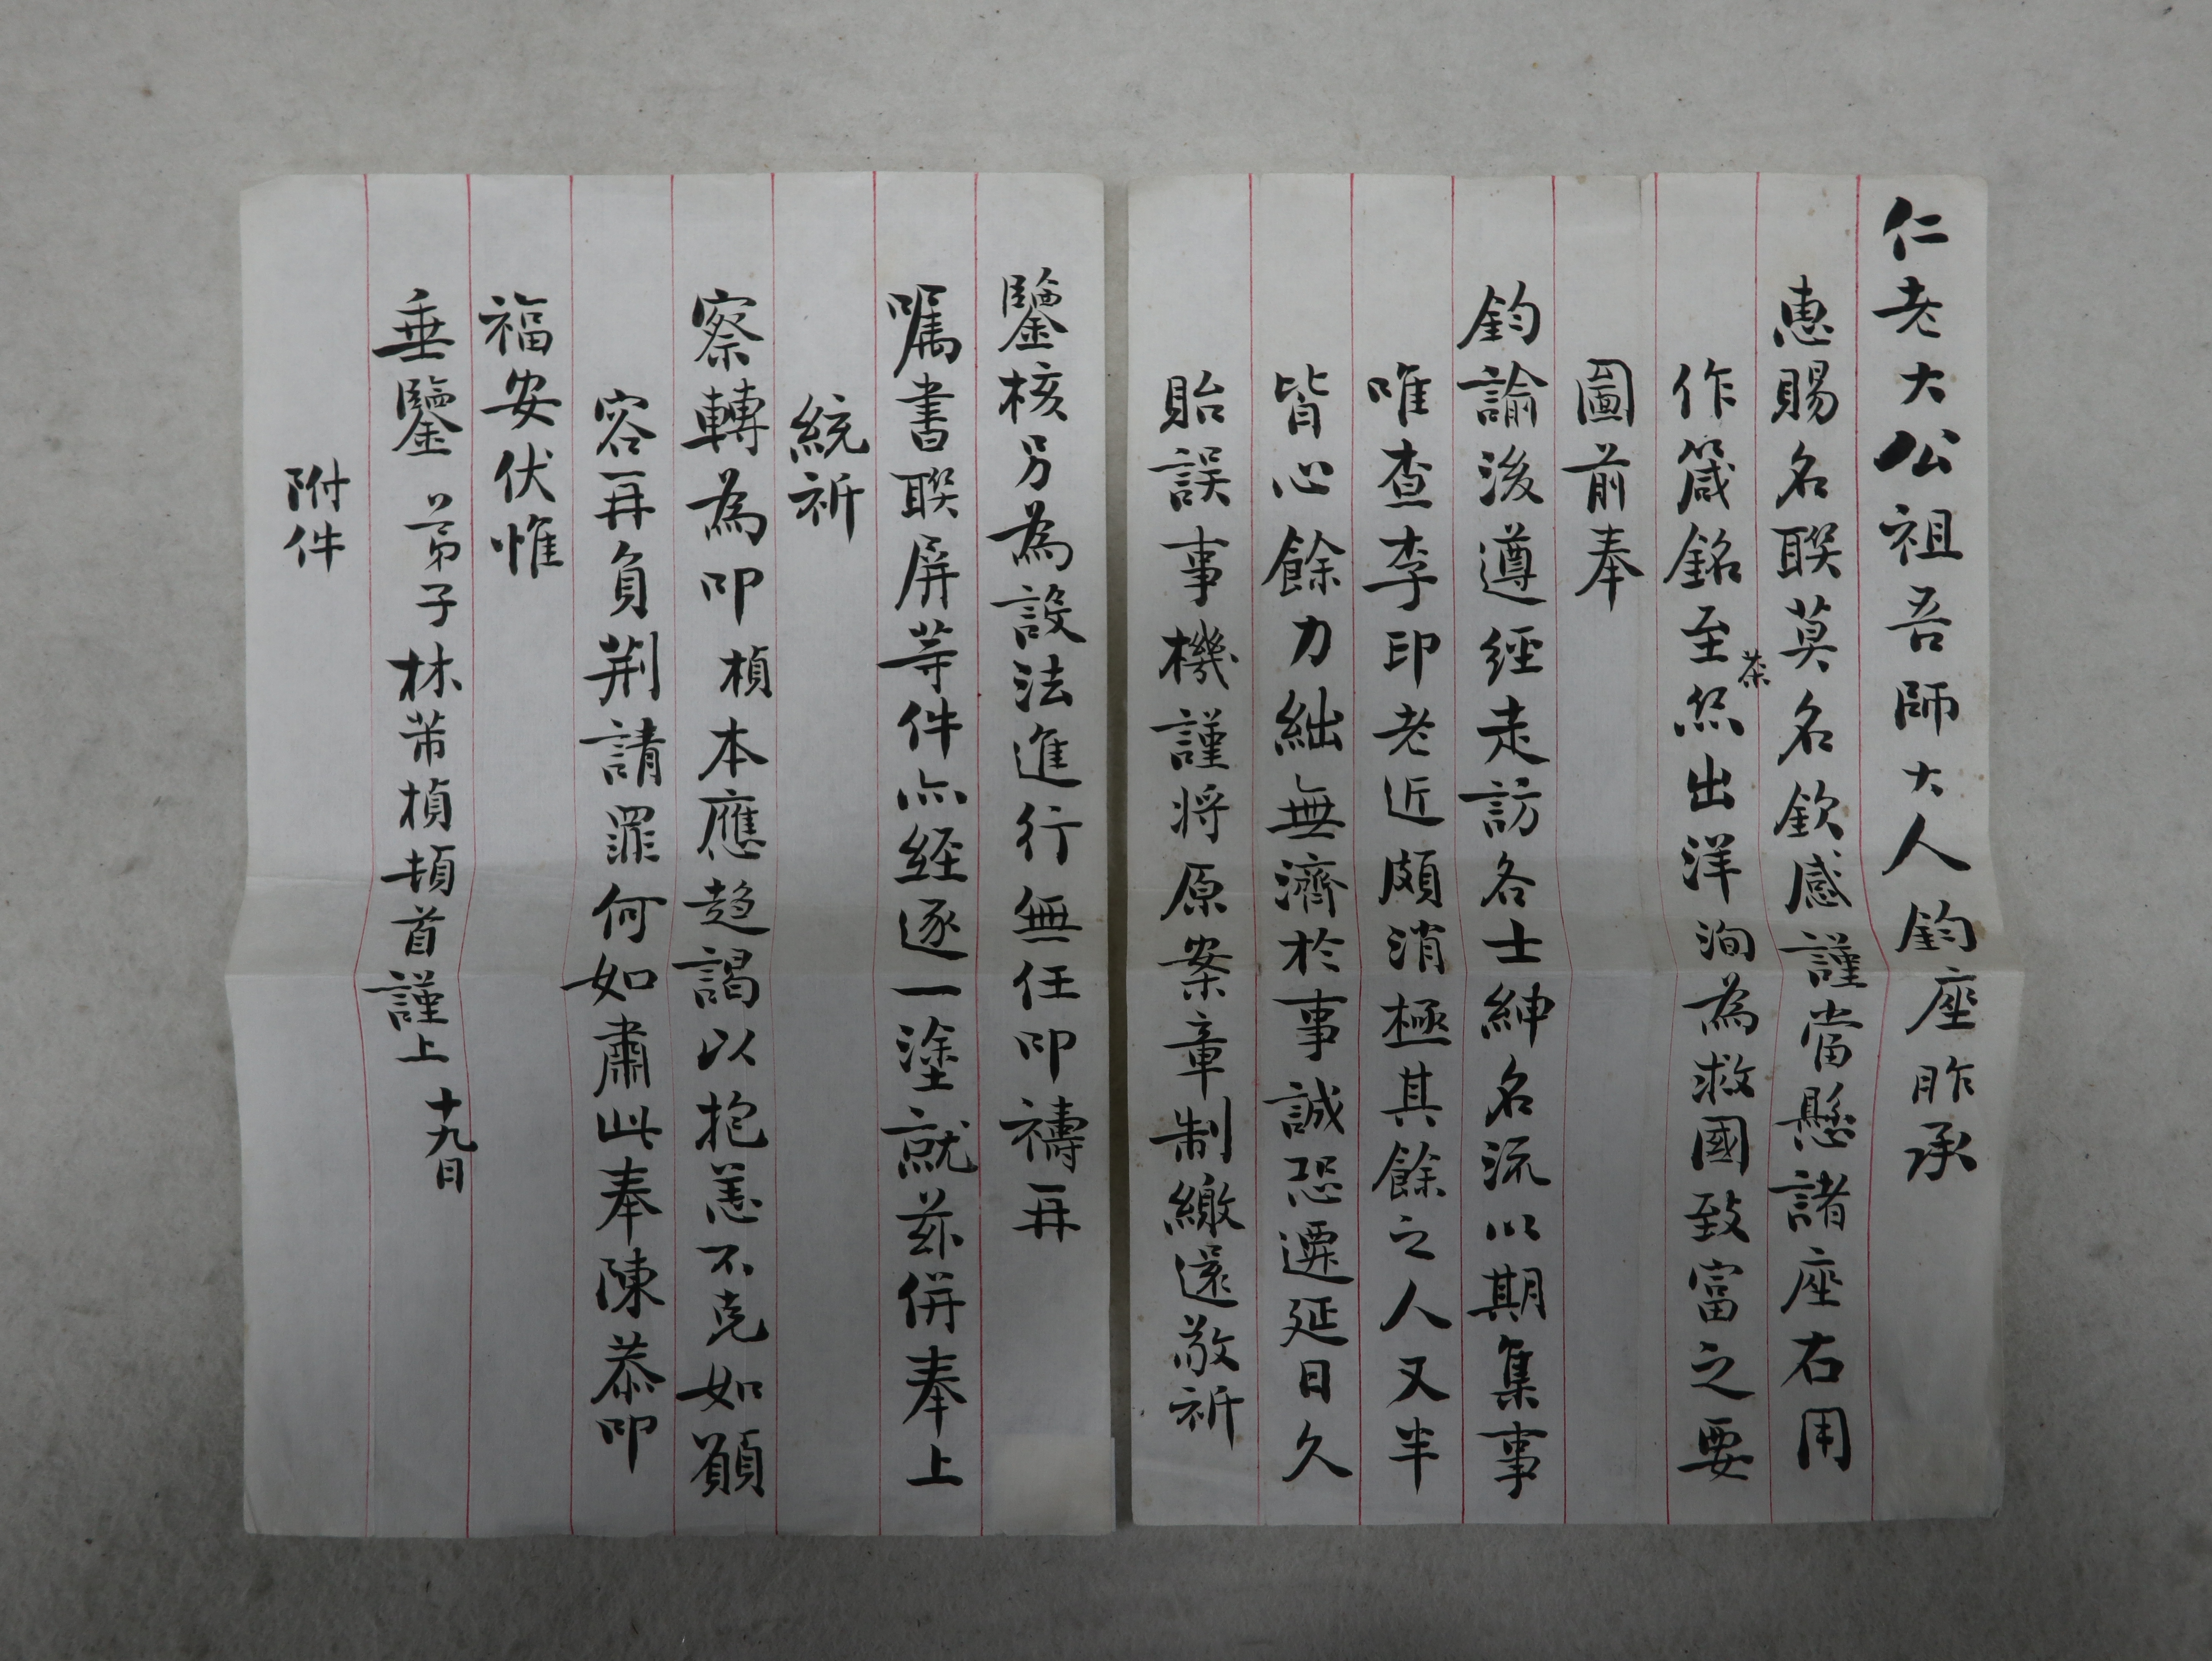 仁老大公祖吾師大人鈞座昨承
惠賜名聯莫名欽感謹當懸諸座右用
作箴銘至茶絲出洋洵為救國致富之要
圖前奉
鈞諭後遵經走訪各士紳名流以期集事
唯查李印老近頗消極其餘之人又半
皆心餘力絀無濟於事誠恐遷延日久
貽誤事機謹将原案章制繳還敬祈
鑒核另為設法進行無任叩禱再
囑書聯屏等件亦経逐一塗就茲併奉上
統祈
察轉為叩楨本應趋謁以抱恙不克如願
容再負荆請罪何如肅此奉陳恭叩
福安伏惟
垂鑒 弟子林芾楨頓首謹上 十九日
附件